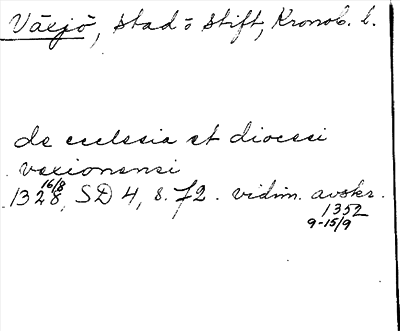 Växjö, stad o stift, Kronob. l.
de ecclesia et diocesi
vexionensi
1328 16/8, SD 4, s. 72. vidim. avskr.
1352
9-15/9